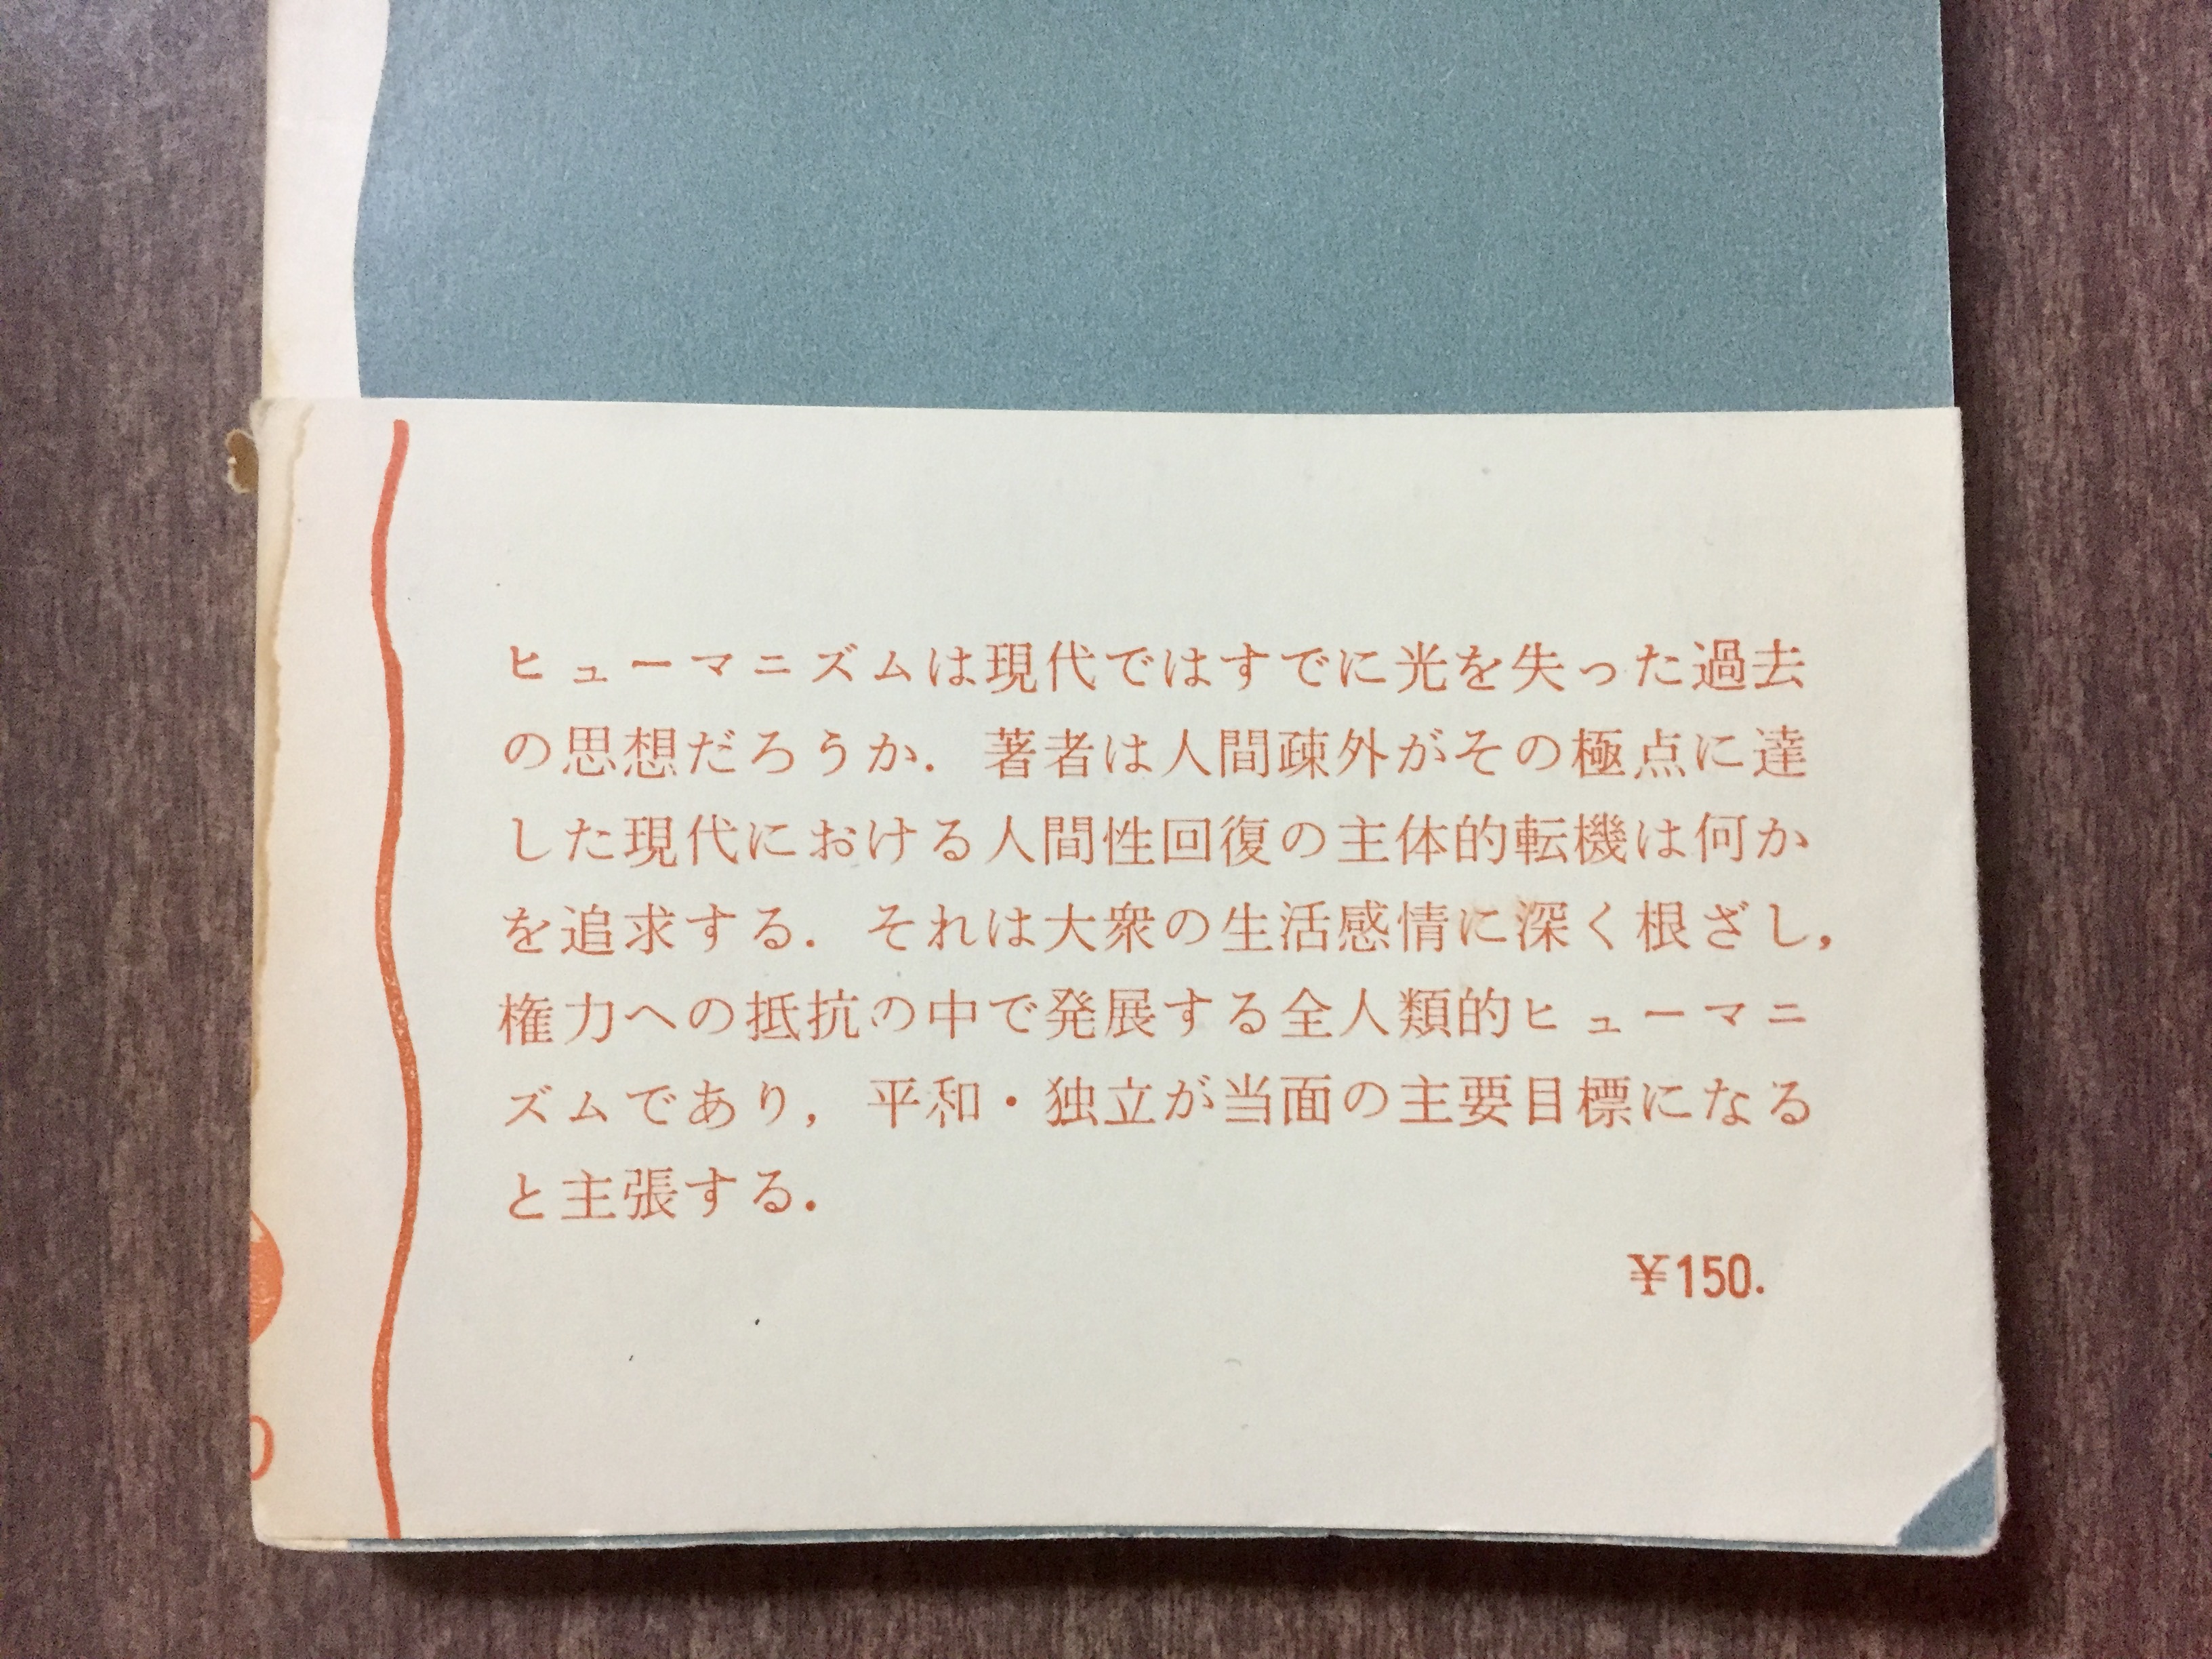 ヒューマニズムは現代ではすでに光を失った過去
の思想だろうか．著者は人間疎外がその極点に達
した現代における人間性回復の主体的転機は何か
を追求する．それは大衆の生活感情に深く根ざし，
権力への抵抗の中で発展する全人類的ヒューマニ
ズムであり，平和・独立が当面の主要目標になる
と主張する．
¥150.